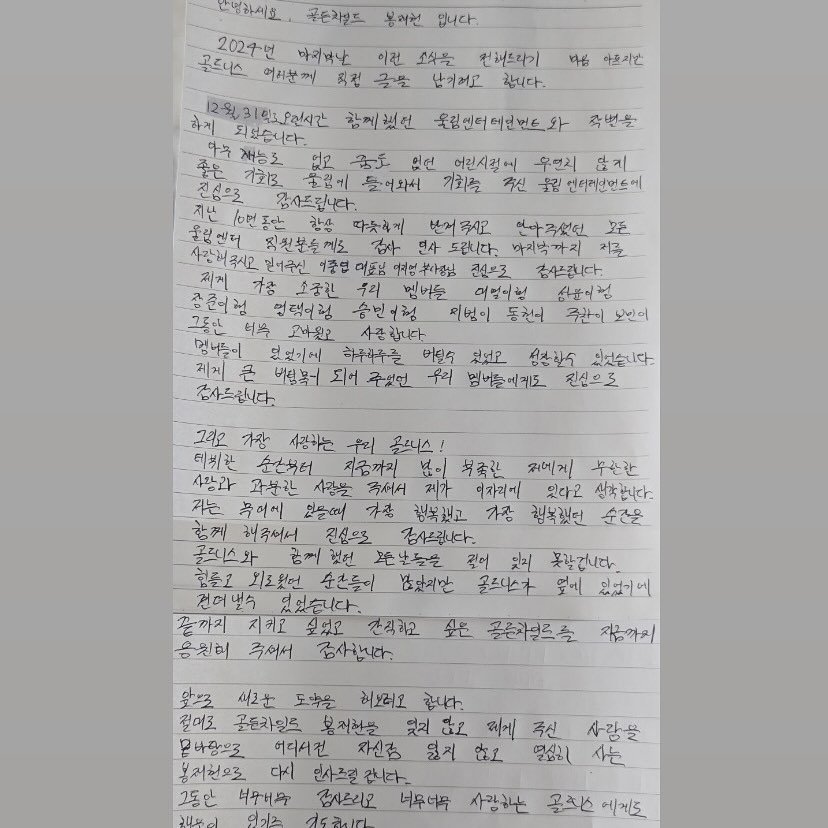 안녕하세요. 골든차일드 봉재현 입니다.
2024년 마지막날 이런 소식을 전해드리기 마음 아프지만
골드니스 여러분께 직접 글을 남기려고 합니다.
12월 31일로 오랜시간 함께했던 울림엔터테인먼트와 작별을
하게 되었습니다.
아무 재능도 없고 꿈도 없던 어린시절에 우연치 않게
좋은 기회로 울림에 들어와서 기회를 주신 울림 엔터테인먼트에
진심으로 감사드립니다.
지난 10년동안 항상 따뜻하게 반겨주시고 안아주셨던 모든
울림엔터 직원분들께도 감사 인사 드립니다. 마지막까지 저를
사랑해주시고 믿어주신 이중엽 대표님 부사장님 진심으로 감사드립니다.
제게 가장 소중한 우리 멤버들 대열이형 성윤이형
장준이형 영택이형 승민이형 지범이 동현이 주찬이 보민이
그동안 너무 고마웠고 사랑합니다.
멤버들이 있었기에 하루하루를 버틸수 있었고 성장할수 있었습니다.
제게 큰 버팀목이 되어 주었던 우리 멤버들에게도 진심으로
감사드립니다.
그리고 가장 사랑하는 우리 골드니스!
데뷔한 순간부터 지금까지 많이 부족한 저에게 무한한
사랑과 과분한 사랑을 주셔서 제가 이자리에 있다고 생각합니다.
저는 무대에 있을때 가장 행복했고 가장 행복했던 순간을
함께 해주셔서 진심으로 감사드립니다.
골드니스와 함께 했던 모든날들을 잊지 못할겁니다.
힘들고 외로웠던 순간들이 많았지만 골드니스가 옆에 있었기에
견뎌낼수 있었습니다.
끝까지 지키고 싶었고 간직하고 싶은 골든차일드를 지금까지
응원해 주셔서 감사합니다.
앞으로 새로운 도약을 해보려고 합니다.
절대로 골든차일드 봉재현을 잊지 않고 제게 주신 사랑을
바탕으로 어디서든 자신감 잃지 않고 열심히 사는
봉재현으로 다시 인사드릴 겁니다.
그동안 너무너무 감사드리고 너무너무 사랑하는 골드니스에게도
행운이 있기를 기도합니다.